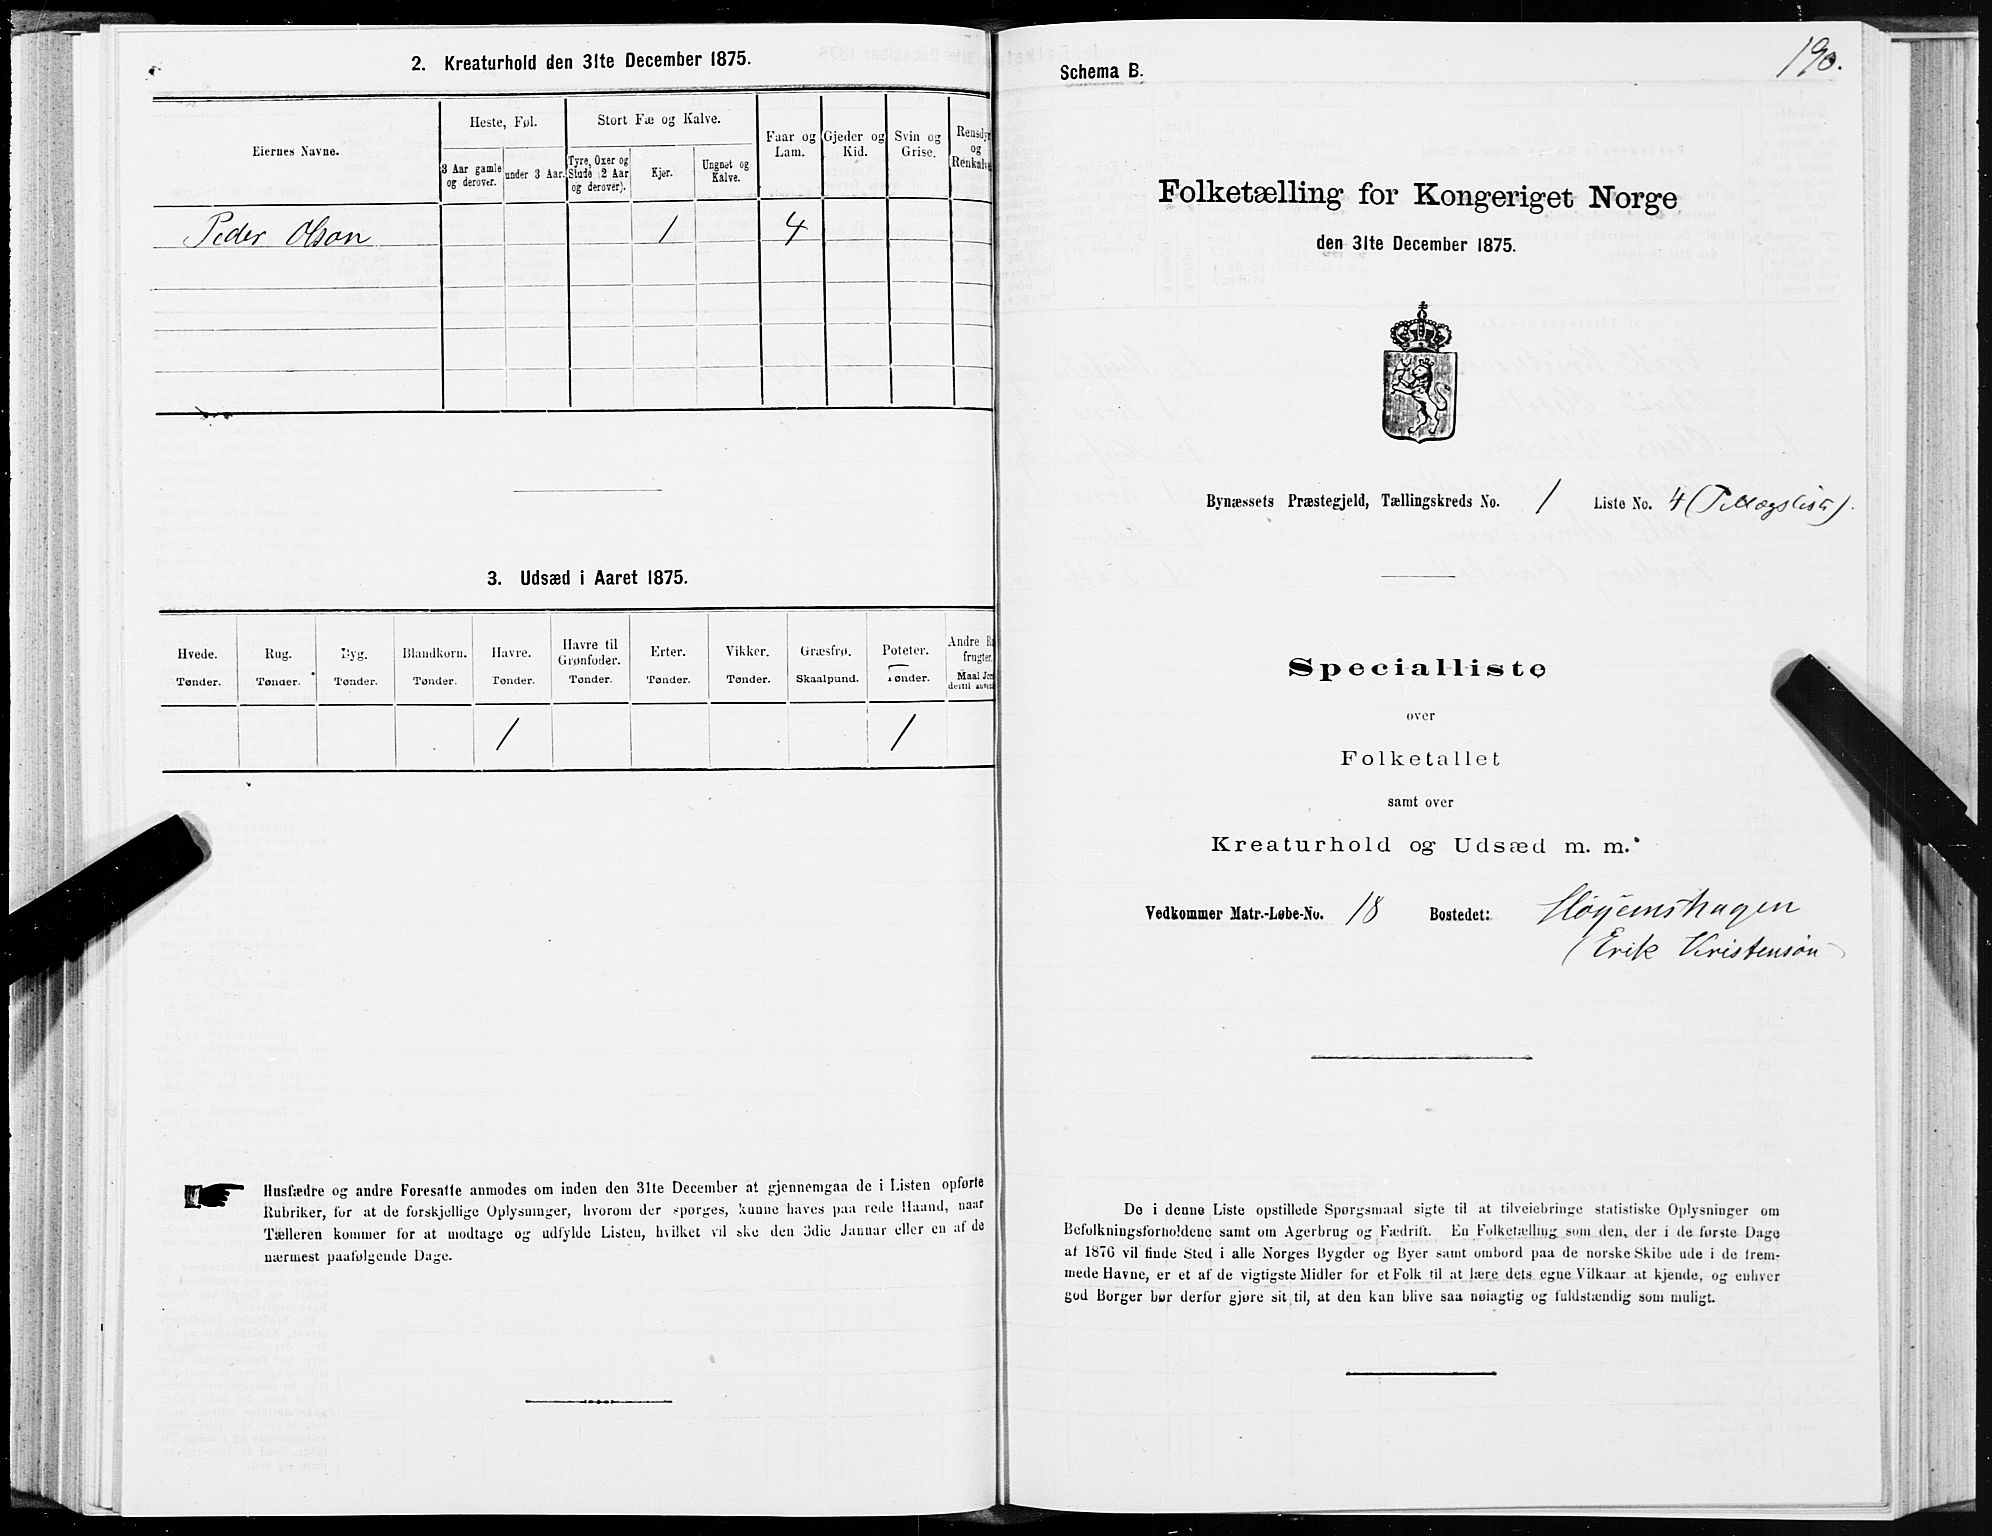 2. Kreaturhold den 31te December 1875.
Eiernes Navne.
Heste, Føl.
Stort Fæ og Kalve.
Faar og Lam.
Gjeder og Kid.
Svin og Grise.
Rensdyr og Renkalve
3 Aar gamle og derover.
under 3 Aar.
Tyre, Oxer og Stude (2 Aar og derover).
Kjer.
Ungnøt og Kalve.
Peder Olsøn 1 4
3. Udsæd i Aaret 1875.
Hvede. Rug. Byg. Blandkorn. Havre. Havre til Grønfoder. Erter. Vikker. Græsfrø. Poteter. Andre
frugter.
Tønder. Tønder. Tønder. Tønder. Tønder. Tønder. Tønder. Tønder. Skaalpund. Tønder. Maal
dertil
1 1
Husfædre og andre Foresatte anmodes om inden den 31te December at gjennemgaa de i Listen opførte
Rubriker, for at de forskjellige Oplysninger, hvorom der spørges, kunne haves paa rede Haand, naar
Tælleren kommer for at modtage og udfylde Listen, hvilket vil ske den 3die Januar eller en af de
nærmest paafølgende Dage.
190.
Schema B.
Folketælling for Kongeriget Norge
den 31te December 1875.
Bynæssets Præstegjeld, Tællingskreds No. 1 Liste No. 4 (Tillægsliste).
Specialliste
over
Folketallet
samt over
Kreaturhold og Udsæd m. m.
Vedkommer Matr.-Løbe-No. 18 Bostedet: Høyemshagen
(Erik Kristensøn)
De i denne Liste opstillede Spørgsmaal sigte til at tilveiebringe statistiske Oplysninger om
Befolkningsforholdene samt om Agerbrug og Fædrift. En Folketælling som den, der i de første Dage
af 1876 vil finde Sted i alle Norges Bygder og Byer samt ombord paa de norske Skibe ude i de frem-
mede Havne, er et af de vigtigste Midler for et Folk til at lære dets egne Vilkaar at kjende, og enhver
god Borger bør derfor gjøre sit til, at den kan blive saa nøiagtig og fuldstændig som muligt.